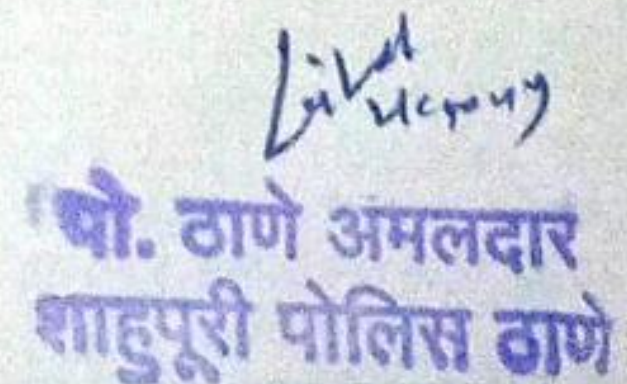 पो. ठाणे अमलदार
शाहुपूरी पोलिस ठाणे